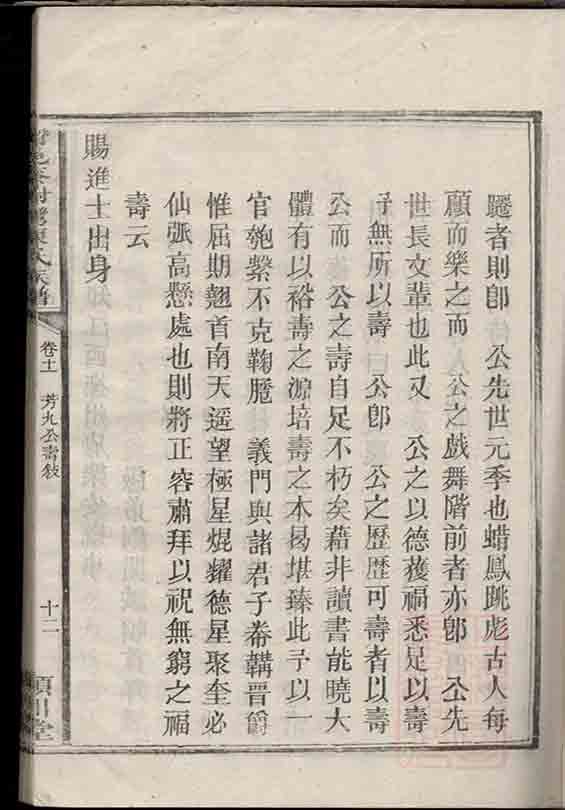 躚者則卽　公先世元季也蜡鳳跳彪古人每
顧而樂之而　公之戲舞階前者亦卽　公先
世長文輩也此又　公之以德獲福悉足以壽
予無所以壽　公卽　公之歷歷可壽者以壽
公而　公之壽自足不朽矣藉非讀書能曉大
體有以裕壽之源培壽之本曷堪臻此予以一
官匏繫不克鞠䠆　義門與諸君子帣韝晉爵
惟屈期翹首南天遥望極星焜耀德星聚奎必
仙弧高懸處也則將正容肅拜以祝無窮之福
壽云
賜進士出身
卷十一　芳九公壽敍
十二